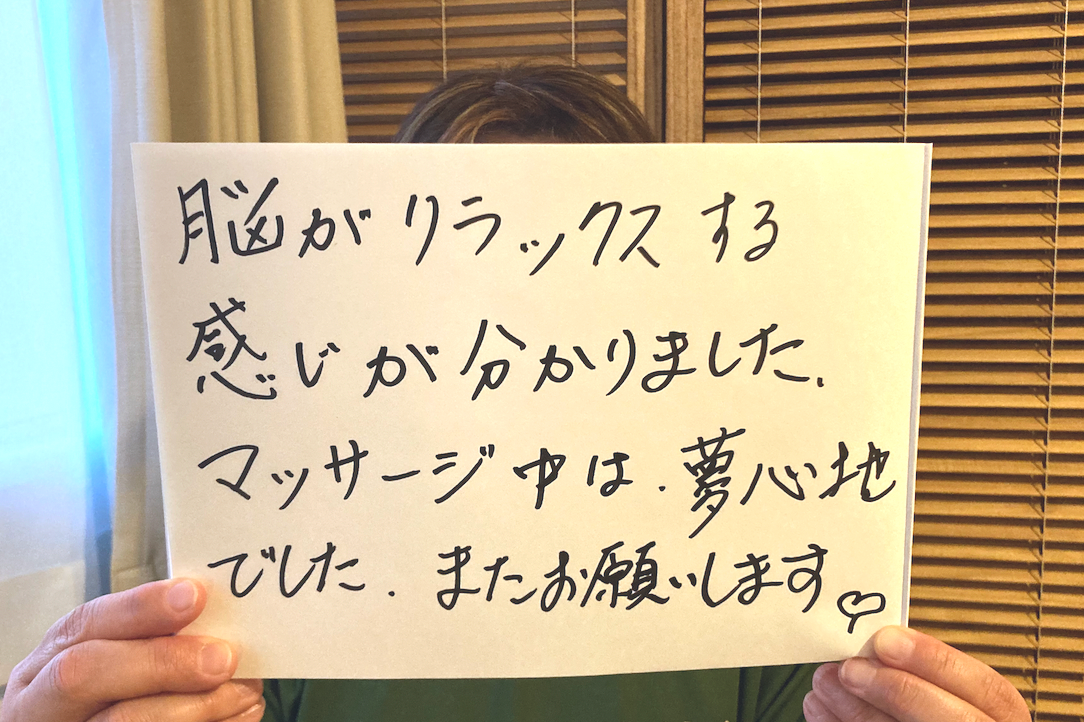 脳がリラックスする
感じが分かりました.
マッサージ中は.夢心地
でした.またお願いします♡